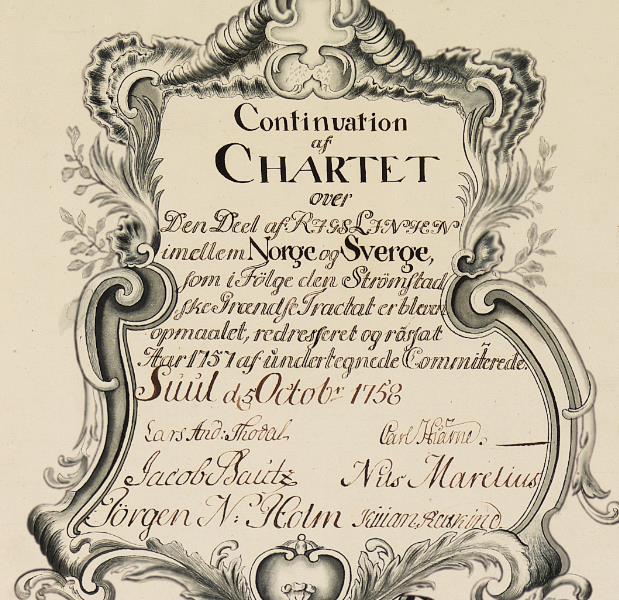 Continuation
af
CHARTET
over
Den Deel af RIGSLINIEN
imellem Norge og Sverge,
som i Fölge den Strömstad
ske Grændse Tractat er bleven
opmaalet, redresseret og råsat
Aar 1757 af undertegnede Committerede.
Suul d 5 Octobr 1758
Lars And: Thodal
Carl Hiärne.
Jacob Bautz
Nils Marelius
Jörgen N: Holm